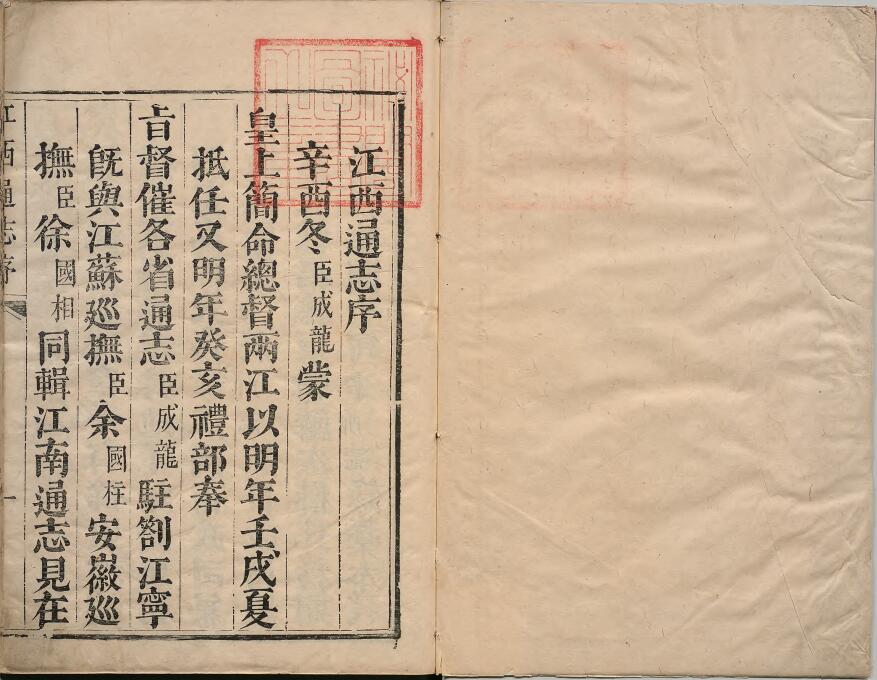 江西通志序
辛酉冬臣成龍蒙
皇上簡命總督兩江以明年壬戌夏
抵任又明年癸亥禮部奉
旨督催各省通志臣成龍駐劄江寧
旣與江蘇廵撫臣余國柱安徽廵
撫臣徐國相同輯江南通志見在
江西通志序
一